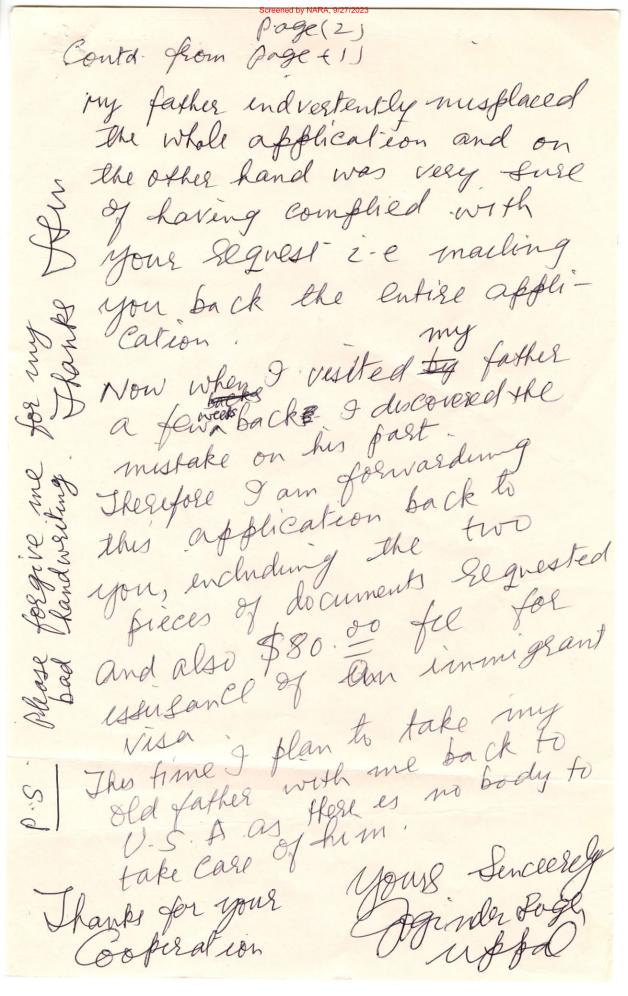 Screened by NARA, 9/27/2023
Page (2)
Contd. from page (1)
my father indvertently misplaced
the whole application and on
the other hand was very sure
of having complied with
your request i-e mailing
you back the entire appli-
cation.
Now when I visited by my father
a few backs weeks back I discovered the
mistake on his part.
Therefore I am forwarding
this application back to
you, including the two
pieces of documents requested
and also $80.00 fee for
issusance of an immigrant
visa.
This time I plan to take my
old father with me back to
U.S.A as there is no body to
take care of him.
Thanks for your
Cooperation
Yours Sinceerely
Joginder Singh
Uppal
P.S. Please forgive me for my
bad handwriting. Thanks